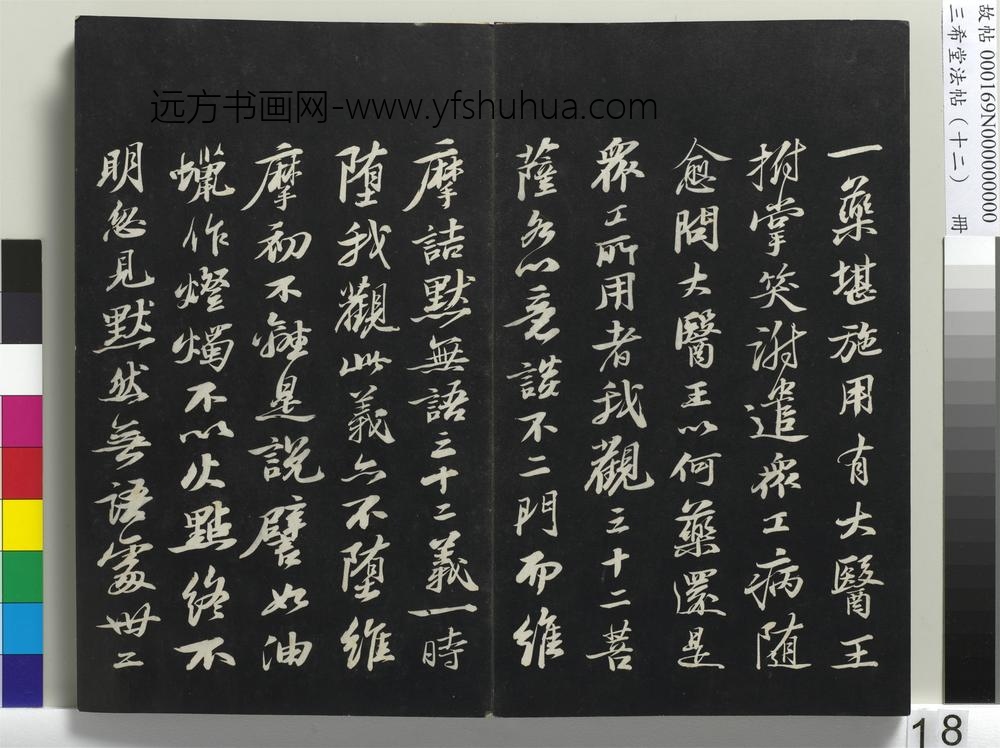 一藥堪施用有大醫王
拊掌笑謝遣眾工病随
愈問大醫王以何藥還是
眾工所用者我觀三十二菩
薩各以意談不二門而維
摩詰默無語三十二義一時
堕我觀此義亦不堕維
摩初不離是説譬如油
蠟作燈燭不以火點終不
明忽見默然無語處卅二
远方书画网-www.yfshuhua.com
故帖 000169N000000000
三希堂法帖(十二) 冊
18